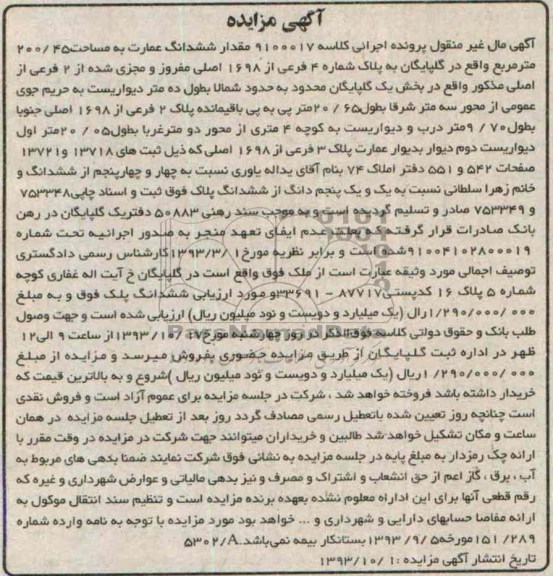 آگهی مزایده
آگهی مال غیر منقول پرونده اجرائی کلاسه ۹۱۰۰۰۱۷ مقدار ششدانگ عمارت به مساحت۲۰۰/۴۵
مترمربع واقع در گلپایگان به پلاک شماره ۴ فرعی از ۱۶۹۸ اصلی مفروز و مجزی شده از ۲ فرعی از
اصلی مذکور واقع در بخش یک گلپایگان محدود به حدود شمالا بطول ده متر دیواریست به حریم جوی
عمومی از محور سه متر شرقا بطول۲۰/۶۵متر پی به پی باقیمانده پلاک ۲ فرعی از ۱۶۹۸ اصلی جنوبا
بطول۹/۷۰متر درب و دیواریست به کوچه ۴ متری از محور دو مترغربا بطول۲۰/۰۵متر اول
دیواریست دوم دیوار بدیوار عمارت پلاک ۳ فرعی از ۱۶۹۸ اصلی که ذیل ثبت های ۱۳۷۱۸ و۱۳۷۲۱
صفحات ۵۴۲ و ۵۵۱ دفتر املاک ۷۴ بنام آقای یداله یاوری نسبت به چهار و چهارپنجم از ششدانگ و
خانم زهرا سلطانی نسبت به یک و یک پنجم دانگ از ششدانگ پلاک فوق ثبت و اسناد چاپی۷۵۳۳۴۸
و ۷۵۳۳۴۹ صادر و تسلیم گردیده است و به موجب سند رهنی ۵۰۸۸۳ دفتریک گلپایگان در رهن
بانک صادرات قرار گرفته که بعلت عدم ایفای تعهد منجر به صدور اجرائیه تحت شماره
۹۱۰۰۴۱۰۲۸۰۰۰۱۹شده است و برابر نظریه مورخ۱۳۹۳/۳/۱کارشناس رسمی دادگستری
توصیف اجمالی مورد وثیقه عبارت است از ملک فوق واقع است در گلپایگان خ آیت اله غفاری کوچه
شماره ۵ پلاک ۱۶ کدپستی۸۷۷۱۷ – ۳۳۶۹۱و مورد ارزیابی ششدانگ پلک فوق و به مبلغ
۱/۲۹۰/۰۰۰/۰۰۰ریال (یک میلیارد و دویست و نود میلیون ریال) ارزیابی شده است و جهت وصول
طلب بانک و حقوق دولتی کلاسه فوق الذکر در روز چهارشنبه مورخ۱۳۹۳/۱۰/۱۷از ساعت ۹ الی۱۲
ظهر در اداره ثبت گلپایگان از طریق مزایده حضوری بفروش میرسد و مزایده از مبلغ
۱/۲۹۰/۰۰۰/۰۰۰ریال (یک میلیارد و دویست و نود میلیون ریال )شروع و به بالاترین قیمت که
خریدار داشته باشد فروخته خواهد شد ، شرکت در جلسه مزایده برای عموم آزاد است و فروش نقدی
است چنانچه روز تعیین شده باتعطیل رسمی مصادف گردد روز بعد از تعطیل جلسه مزایده در همان
ساعت و مکان تشکیل خواهد شد طالبین و خریداران میتوانند جهت شرکت در مزایده در وقت مقرر با
ارائه چک رمزدار به مبلغ پایه در جلسه مزایده به نشانی فوق شرکت نمایند ضمنا بدهی های مربوط به
آب ، برق ، گاز اعم از حق انشعاب و اشتراک و مصرف و نیز بدهی مالیاتی و عوارض شهرداری و غیره که
رقم قطعی آنها برای این اداراه معلوم نشده بعهده برنده مزایده است و تنظیم سند انتقال موکول به
ارائه مفاصا حسابهای دارایی و شهرداری و ... خواهد بود مورد مزایده با توجه به نامه وارده شماره
۱۵۱/۲۸۹مورخه۱۳۹۳/۹/۵ بستانکار بیمه نمی‌باشد.۵۳۰۲/A
تاریخ انتشار آگهی مزایده :۱۳۹۳/۱۰/۱